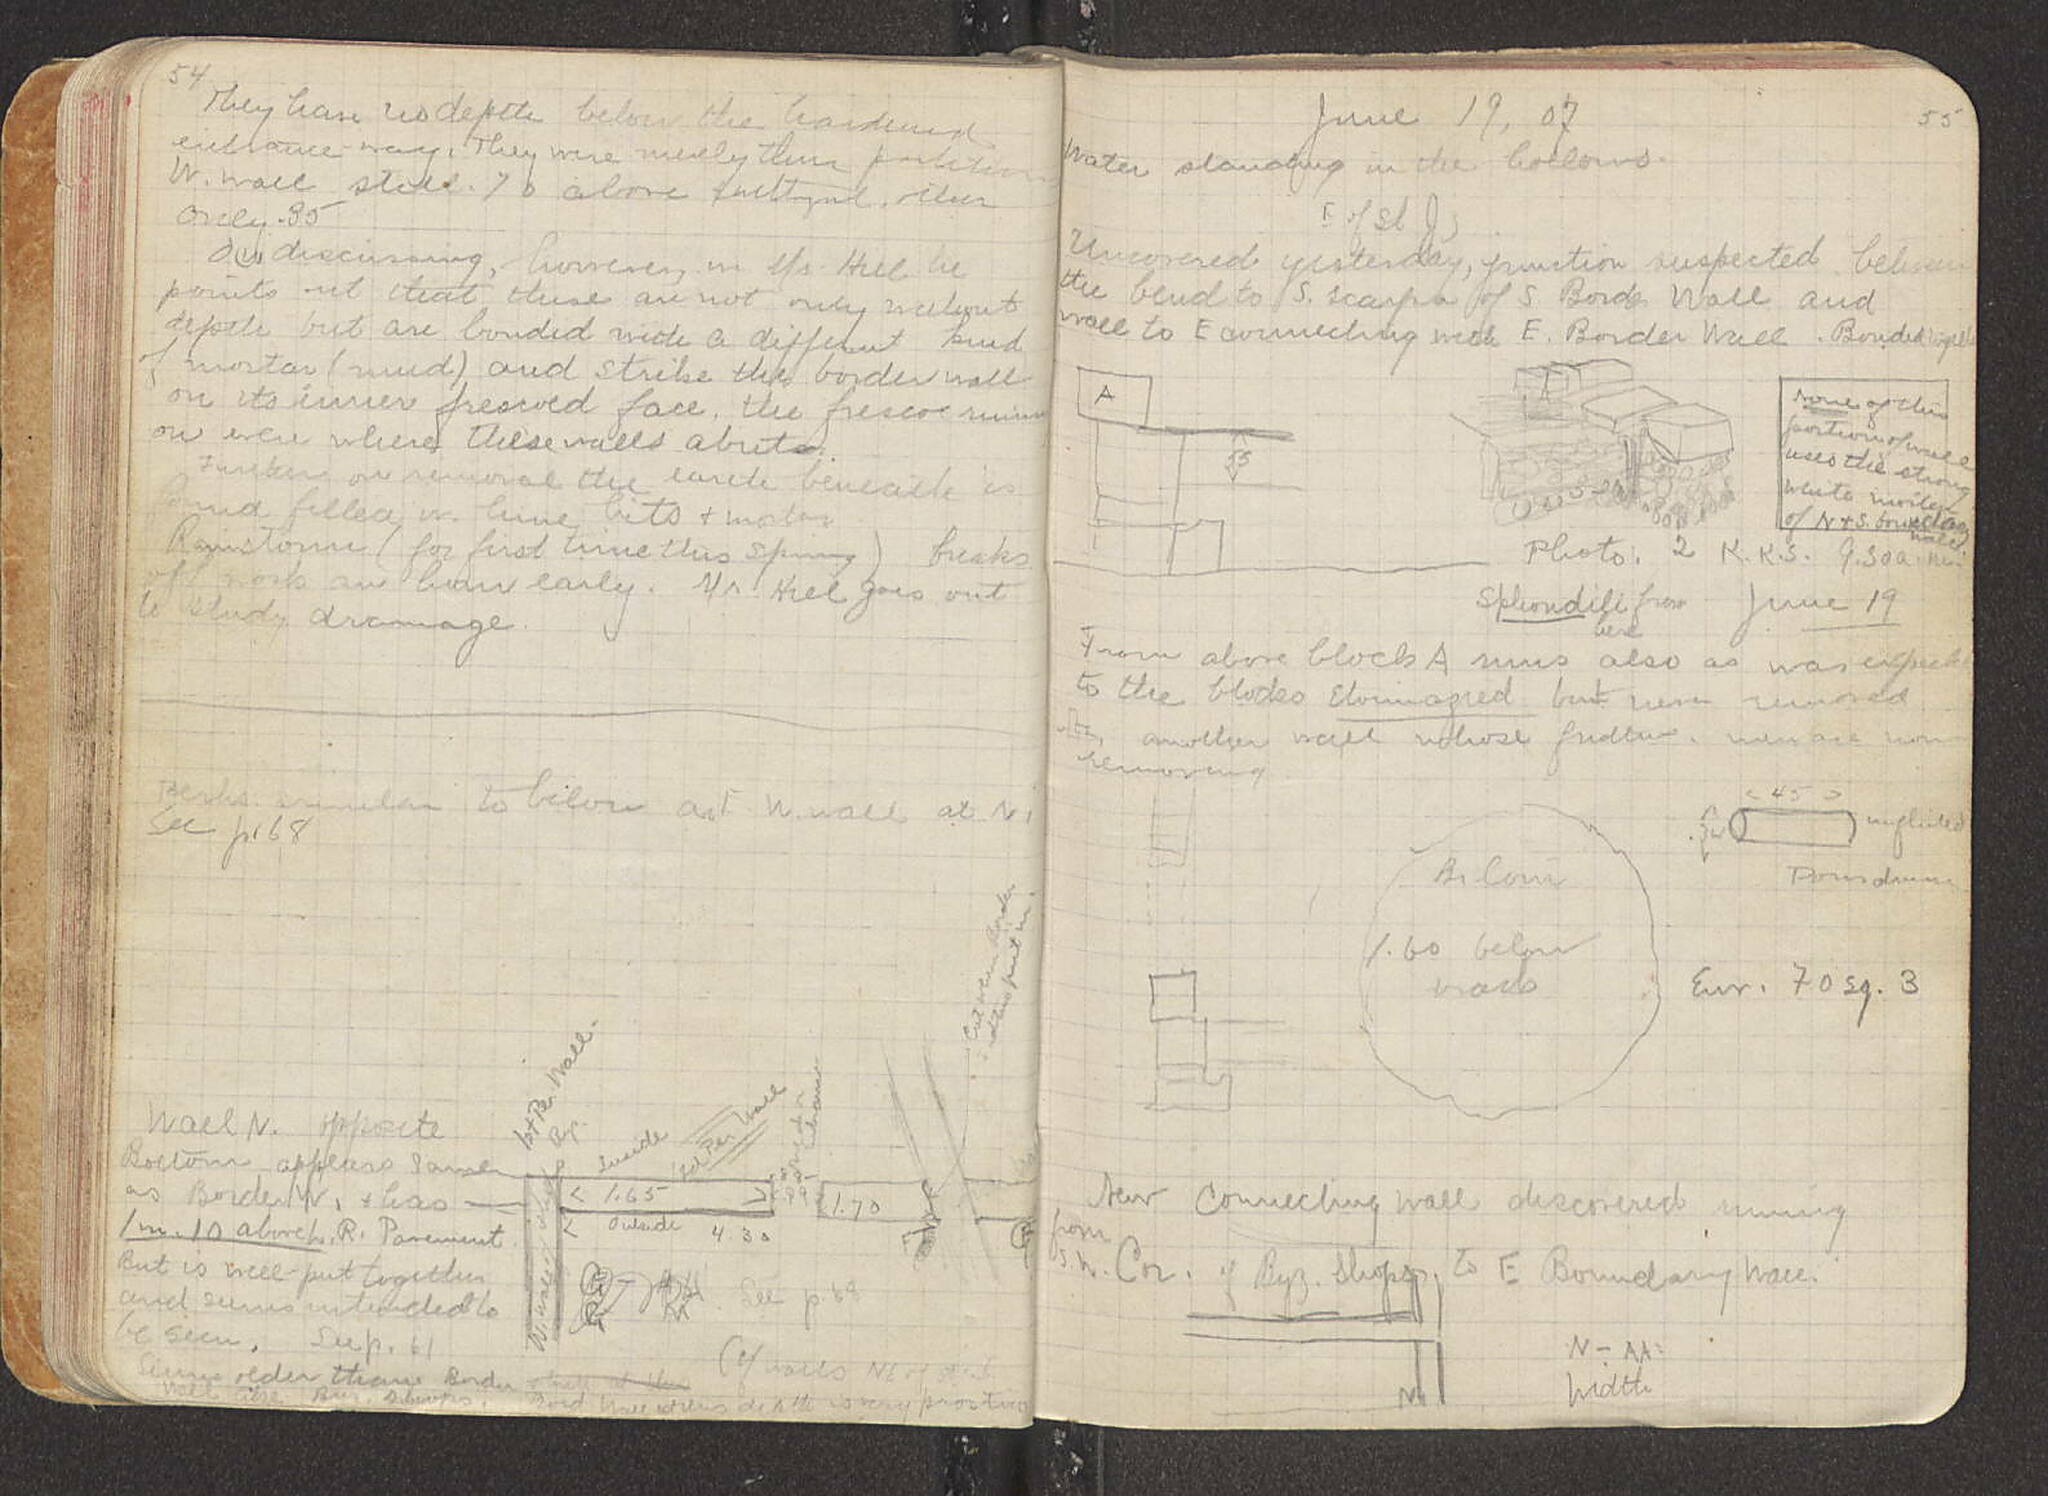 54
They have no depth below the hardened
entrance-way. They were merely thin partition
W. wall still .70 above
Only .35
discussing, however, w. Mr. Hill he
points out that these are not only without
depth but are bonded with a different kind
of mortar (mud) and strike the border wall
on its inner frescoed face, the fresco
on even where these walls abut.
Further on removal the earth beneath is
found filled w. lime bits + mortar
Rainstorm (for first time this spring) breaks
off work an hour early. Mr. Hill goes out
to study drainage.
similar to below W. wall at N.
See p. 68
Cut when Border
put in.
1st Per. Wall.
Inside
1st Per. Wall
Entrance
Wall N. opposite
Bottom appears same
as Border W. + has
1m. 10 above R. Pavement
But is well put together
and seems intended to
be seen. See p. 61
Seems older than Border
wall like Byz. Shops.
< 1.65 >
1.70
Outside
< 4.30
See p. 68
Cf walls NE of
55
June 19, 07
Water standing in the hollows.
E of St J.
Uncovered yesterday, junction suspected between
the bend to S. scarpa of S Border Wall and
wall to E connecting with E. Border Wall. Bonded together
A
A
55
None of this
portion of wall
uses the strong
white mortar
of N + S. boundary
wall.
Photo: 2 K.K.S. 9.30 a.m.
Sphondili from June 19
here
From above block A runs also as was expected
to the blocks but never removed
another wall whose men are now
removing
< 45 >
unfluted
Doris drum
Bi Coin
1.60 below
Eur. 70 sq. 3
New Connecting wall discovered running
from
S.W. Cor. of Byz. Shops, to E Boundary Wall.
N
N – AA:
Width